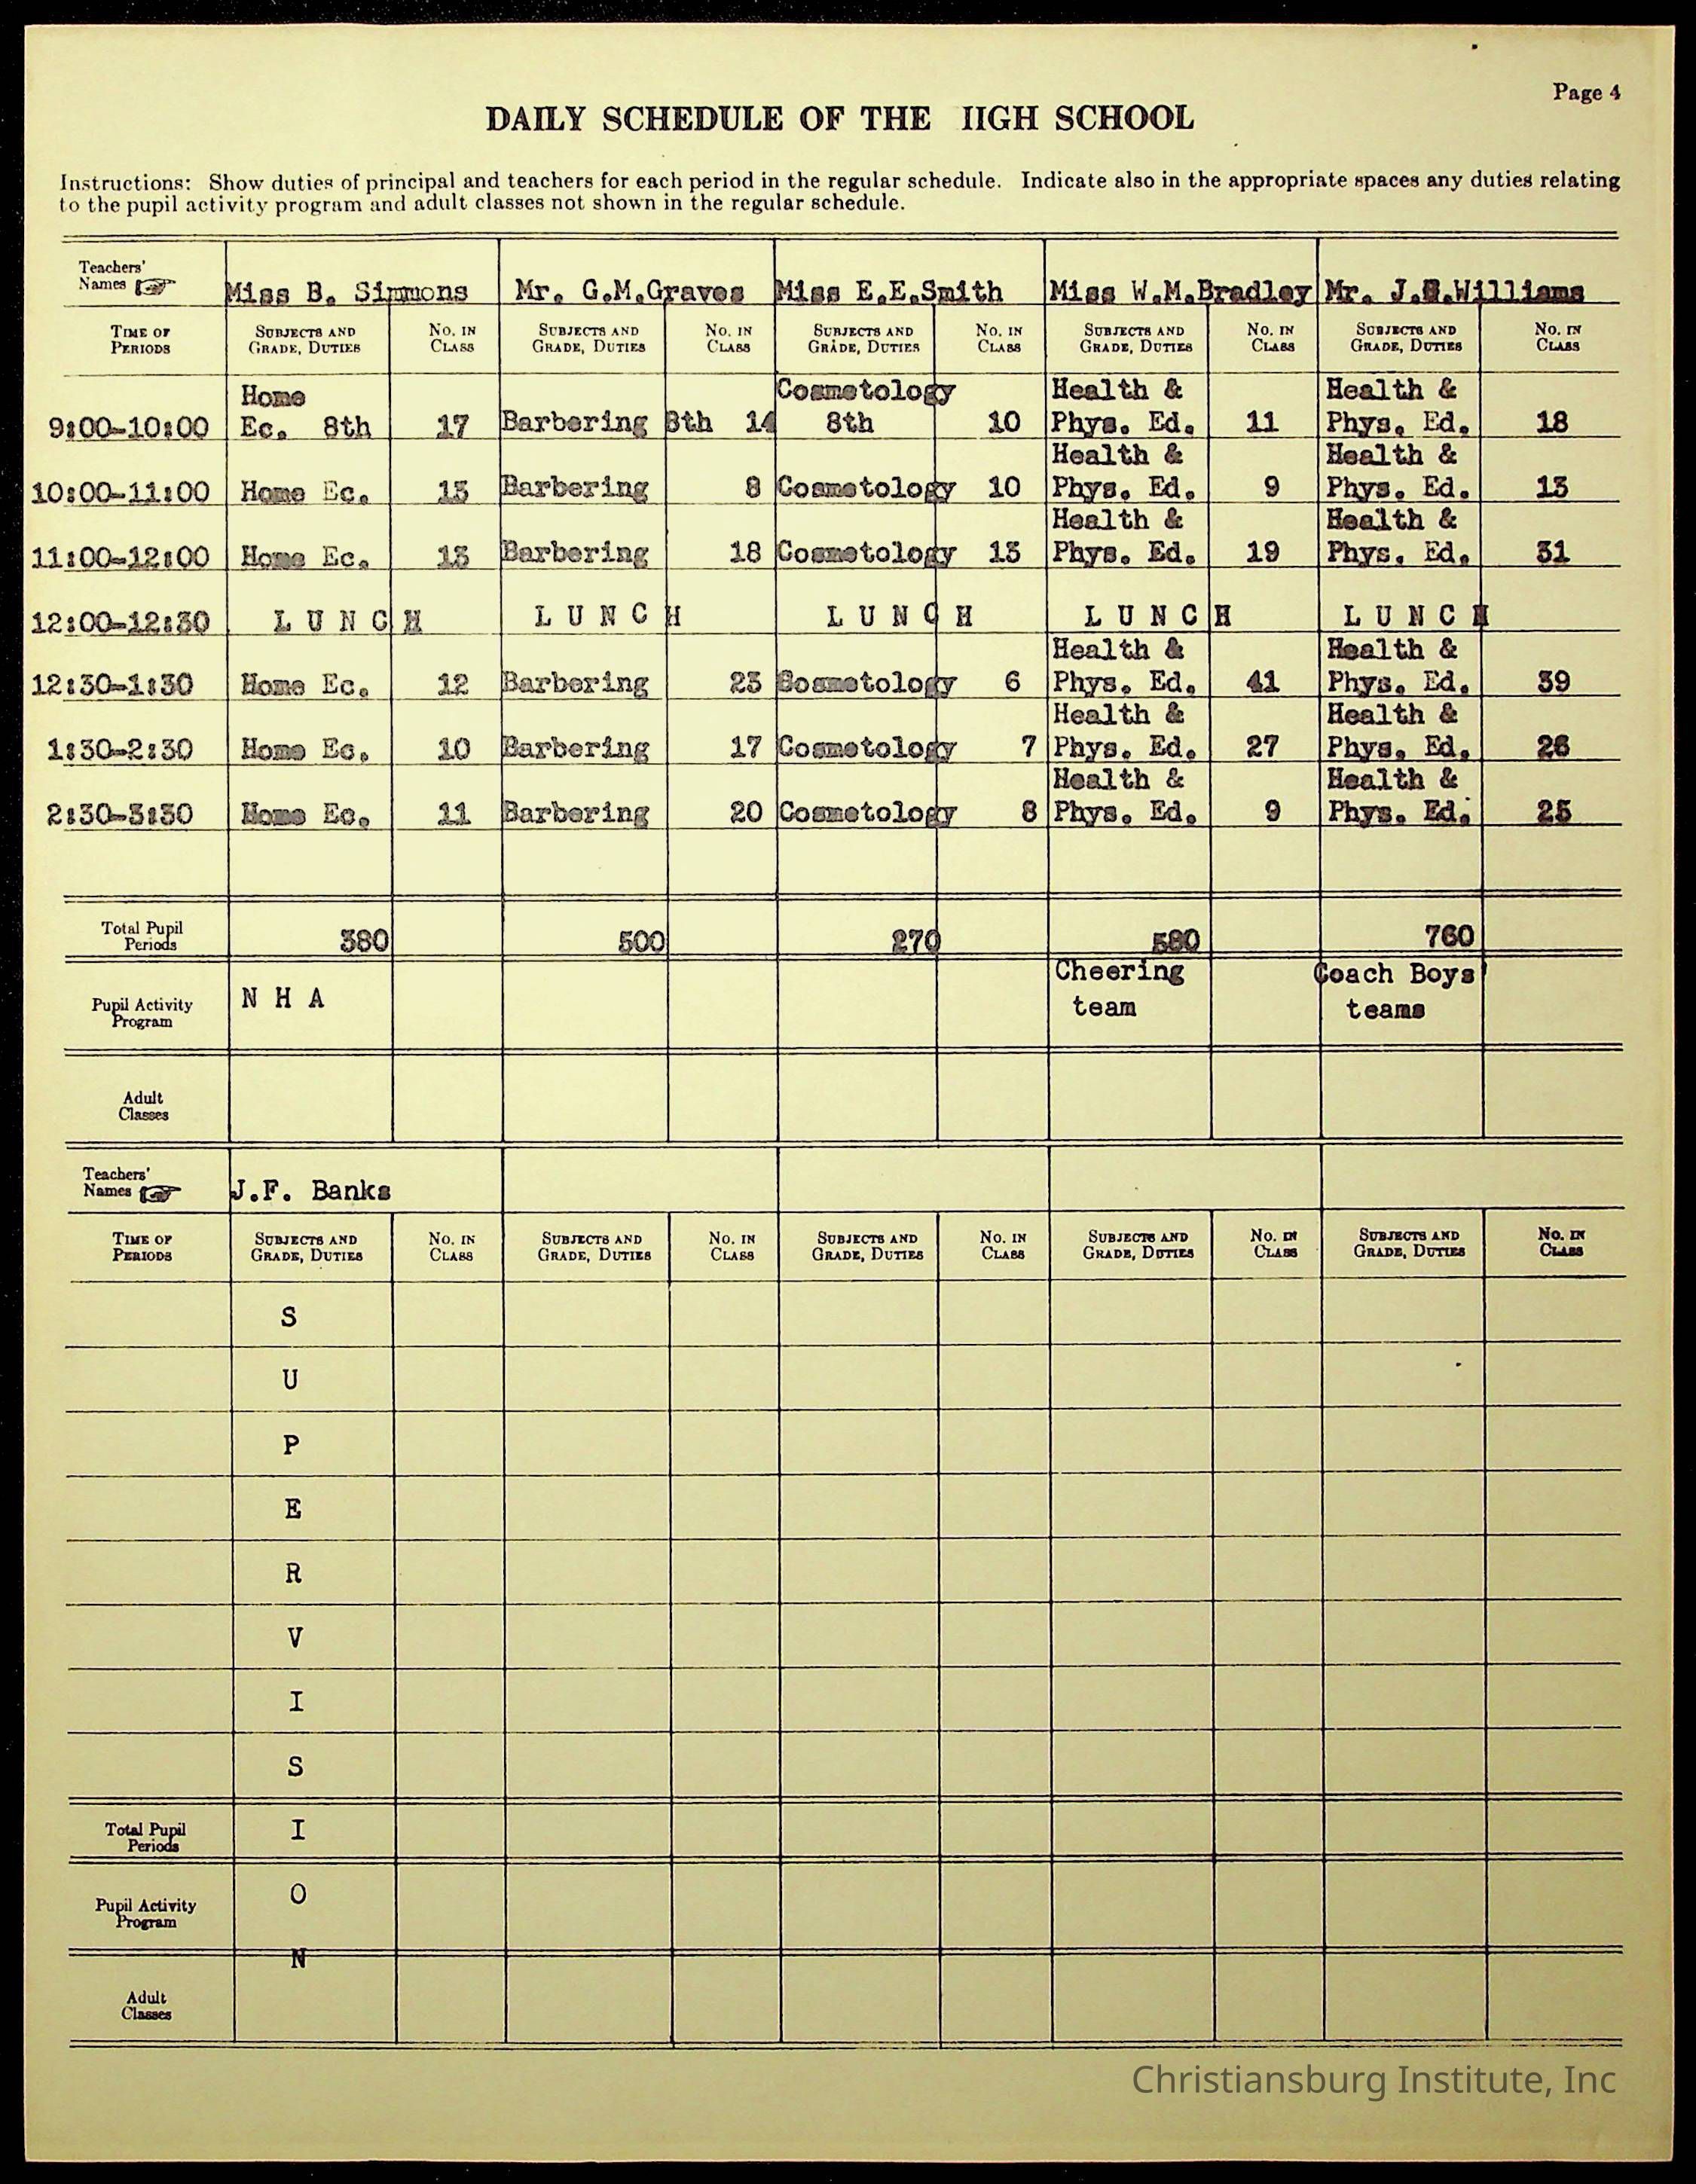 Page 4
DAILY SCHEDULE OF THE IIGH SCHOOL
Instructions: Show duties of principal and teachers for each period in the regular schedule. Indicate also in the appropriate spaces any duties relating
to the pupil activity program and adult classes not shown in the regular schedule.
Teachers'
Names Miss B. Simmons Mr. G.M.Graves Miss E.E.Smith Miss W.M.Bradley Mr. Williams
TIME OF SUBJECTS AND NO. IN SUBJECTS AND NO. IN SUBJECTS AND NO. IN SUBJECTS AND NO. IN SUBJECTS AND NO. IN
PERIODS GRADE, DUTIES CLASS GRADE, DUTIES CLASS GRADE, DUTIES CLASS GRADE, DUTIES CLASS GRADE, DUTIES CLASS
Home Cosmetology Health & Health &
9:00-10:00 Ec. 8th 17 Barbering 8th 14 8th 10 Phys. Ed. 11 Phys. Ed. 18
Health & Health &
10:00-11:00 Home Ec. 13 Barbering 8 Cosmetology 10 Phys. Ed. 9 Phys. Ed. 13
Health & Health &
11:00-12:00 Home Ec. 13 Barbering 18 Cosmetology 13 Phys. Ed. 19 Phys. Ed. 31
12:00-12:30 L U N C H L U N C H L U N C H L U N C H L U N C H
Health & Health &
12:30-1:30 Home Ec. 12 Barbering 23 Cosmetology 6 Phys. Ed. 41 Phys. Ed. 39
Health & Health &
1:30-2:30 Home Ec. 10 Barbering 17 Cosmetology 7 Phys. Ed. 27 Phys. Ed. 26
Health & Health &
2:30-3:30 Home Ec. 11 Barbering 20 Cosmetology 8 Phys. Ed. 9 Phys. Ed. 25
Total Pupil
Periods 380 500 270 580 760
Pupil Activity
Program N H A Cheering team Coach Boys' teams
Adult
Classes
Teachers'
Names J.F. Banks
TIME OF SUBJECTS AND NO. IN SUBJECTS AND NO. IN SUBJECTS AND NO. IN SUBJECTS AND NO. IN SUBJECTS AND NO. IN
PERIODS GRADE, DUTIES CLASS GRADE, DUTIES CLASS GRADE, DUTIES CLASS GRADE, DUTIES CLASS GRADE, DUTIES CLASS
S
U
P
E
R
V
I
S
Total Pupil
Periods I
Pupil Activity
Program O
N
Adult
Classes
Christiansburg Institute, Inc